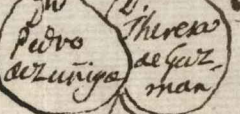 Pedro
de Zuñiga
Theresa
de Guz-
man